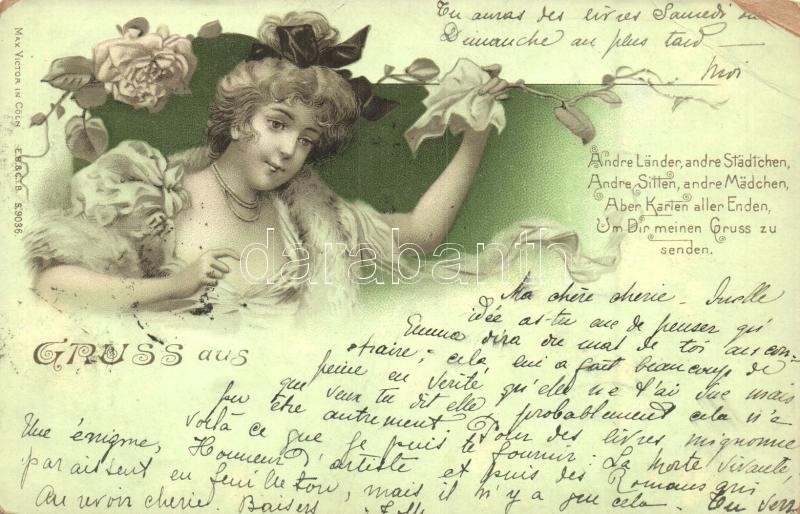 Tu auras des livres Samedi ou
Dimanche au plus tard —
Moi
MAX VICTOR IN CÖLN E.B.&C.i.B. S.9036.
Andre Länder, andre Städtchen,
Andre Sitten, andre Mädchen,
Aber Karten aller Enden,
Um Dir meinen Gruss zu
senden.
darabanth
GRUSS aus
Ma chère cherie – Quelle
idée as-tu eue de penser qu'
Emma dira du mal de toi au con-
traire; cela lui a fait beaucoup de
peine en verité qu'elle ne t'ai vue mais
que veux tu dit elle, probablement cela n'a
pu être autrement. Pour des livres mignonne
voilà ce que je puis te fournir: La morte vivante,
Une énigme, Honneur d'artiste et puis des Romans qui
paraissent en feuilleton, mais il n'y a que cela. Tu verr
Au revoir cherie. Baisers